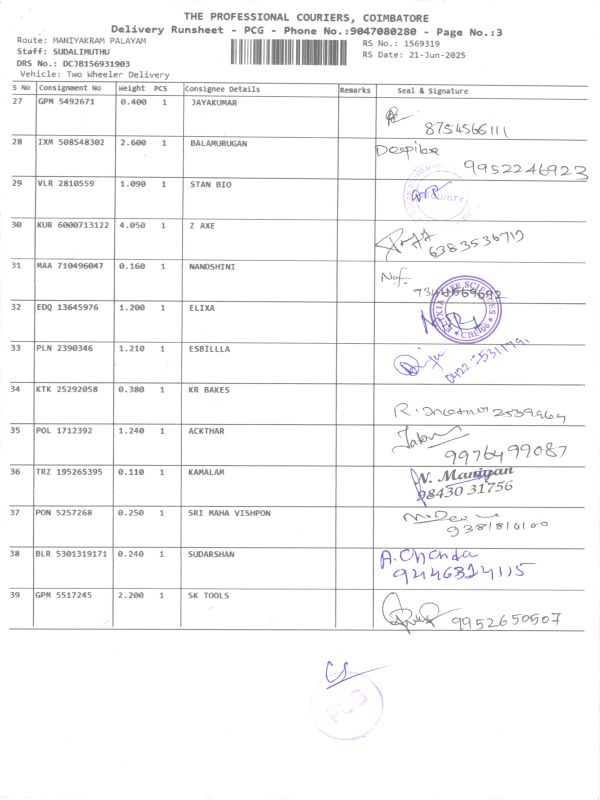 THE PROFESSIONAL COURIERS, COIMBATORE
Delivery Runsheet - PCG - Phone No.:9047080280 - Page No.:3
Route: MANIYAKRAM PALAYAM RS No.: 1569319
Staff: SUDALIMUTHU RS Date: 21-Jun-2025
DRS No.: DCJB156931903
Vehicle: Two Wheeler Delivery
S No Consignment No Weight PCS Consignee Details Remarks Seal & Signature
27 GPM 5492671 0.400 1 JAYAKUMAR
8754566111
28 IXM 508548302 2.600 1 BALAMURUGAN Deepika
9952246923
29 VLR 2810559 1.090 1 STAN BIO
30 KUR 6000713122 4.050 1 Z AXE
6383536719
31 MAA 710496047 0.160 1 NANDSHINI
32 EDQ 13645976 1.200 1 ELIXA
33 PLN 2390346 1.210 1 ESBILLLA
34 KTK 25292058 0.380 1 KR BAKES
35 POL 1712392 1.240 1 ACKTHAR
9976499087
36 TRZ 195265395 0.110 1 KAMALAM N. Manigan
98430 31756
37 PON 5257268 0.250 1 SRI MAHA VISHPON
9381810100
38 BLR 5301319171 0.240 1 SUDARSHAN A. Chanda
39 GPM 5517245 2.200 1 SK TOOLS
9952650507
PCG